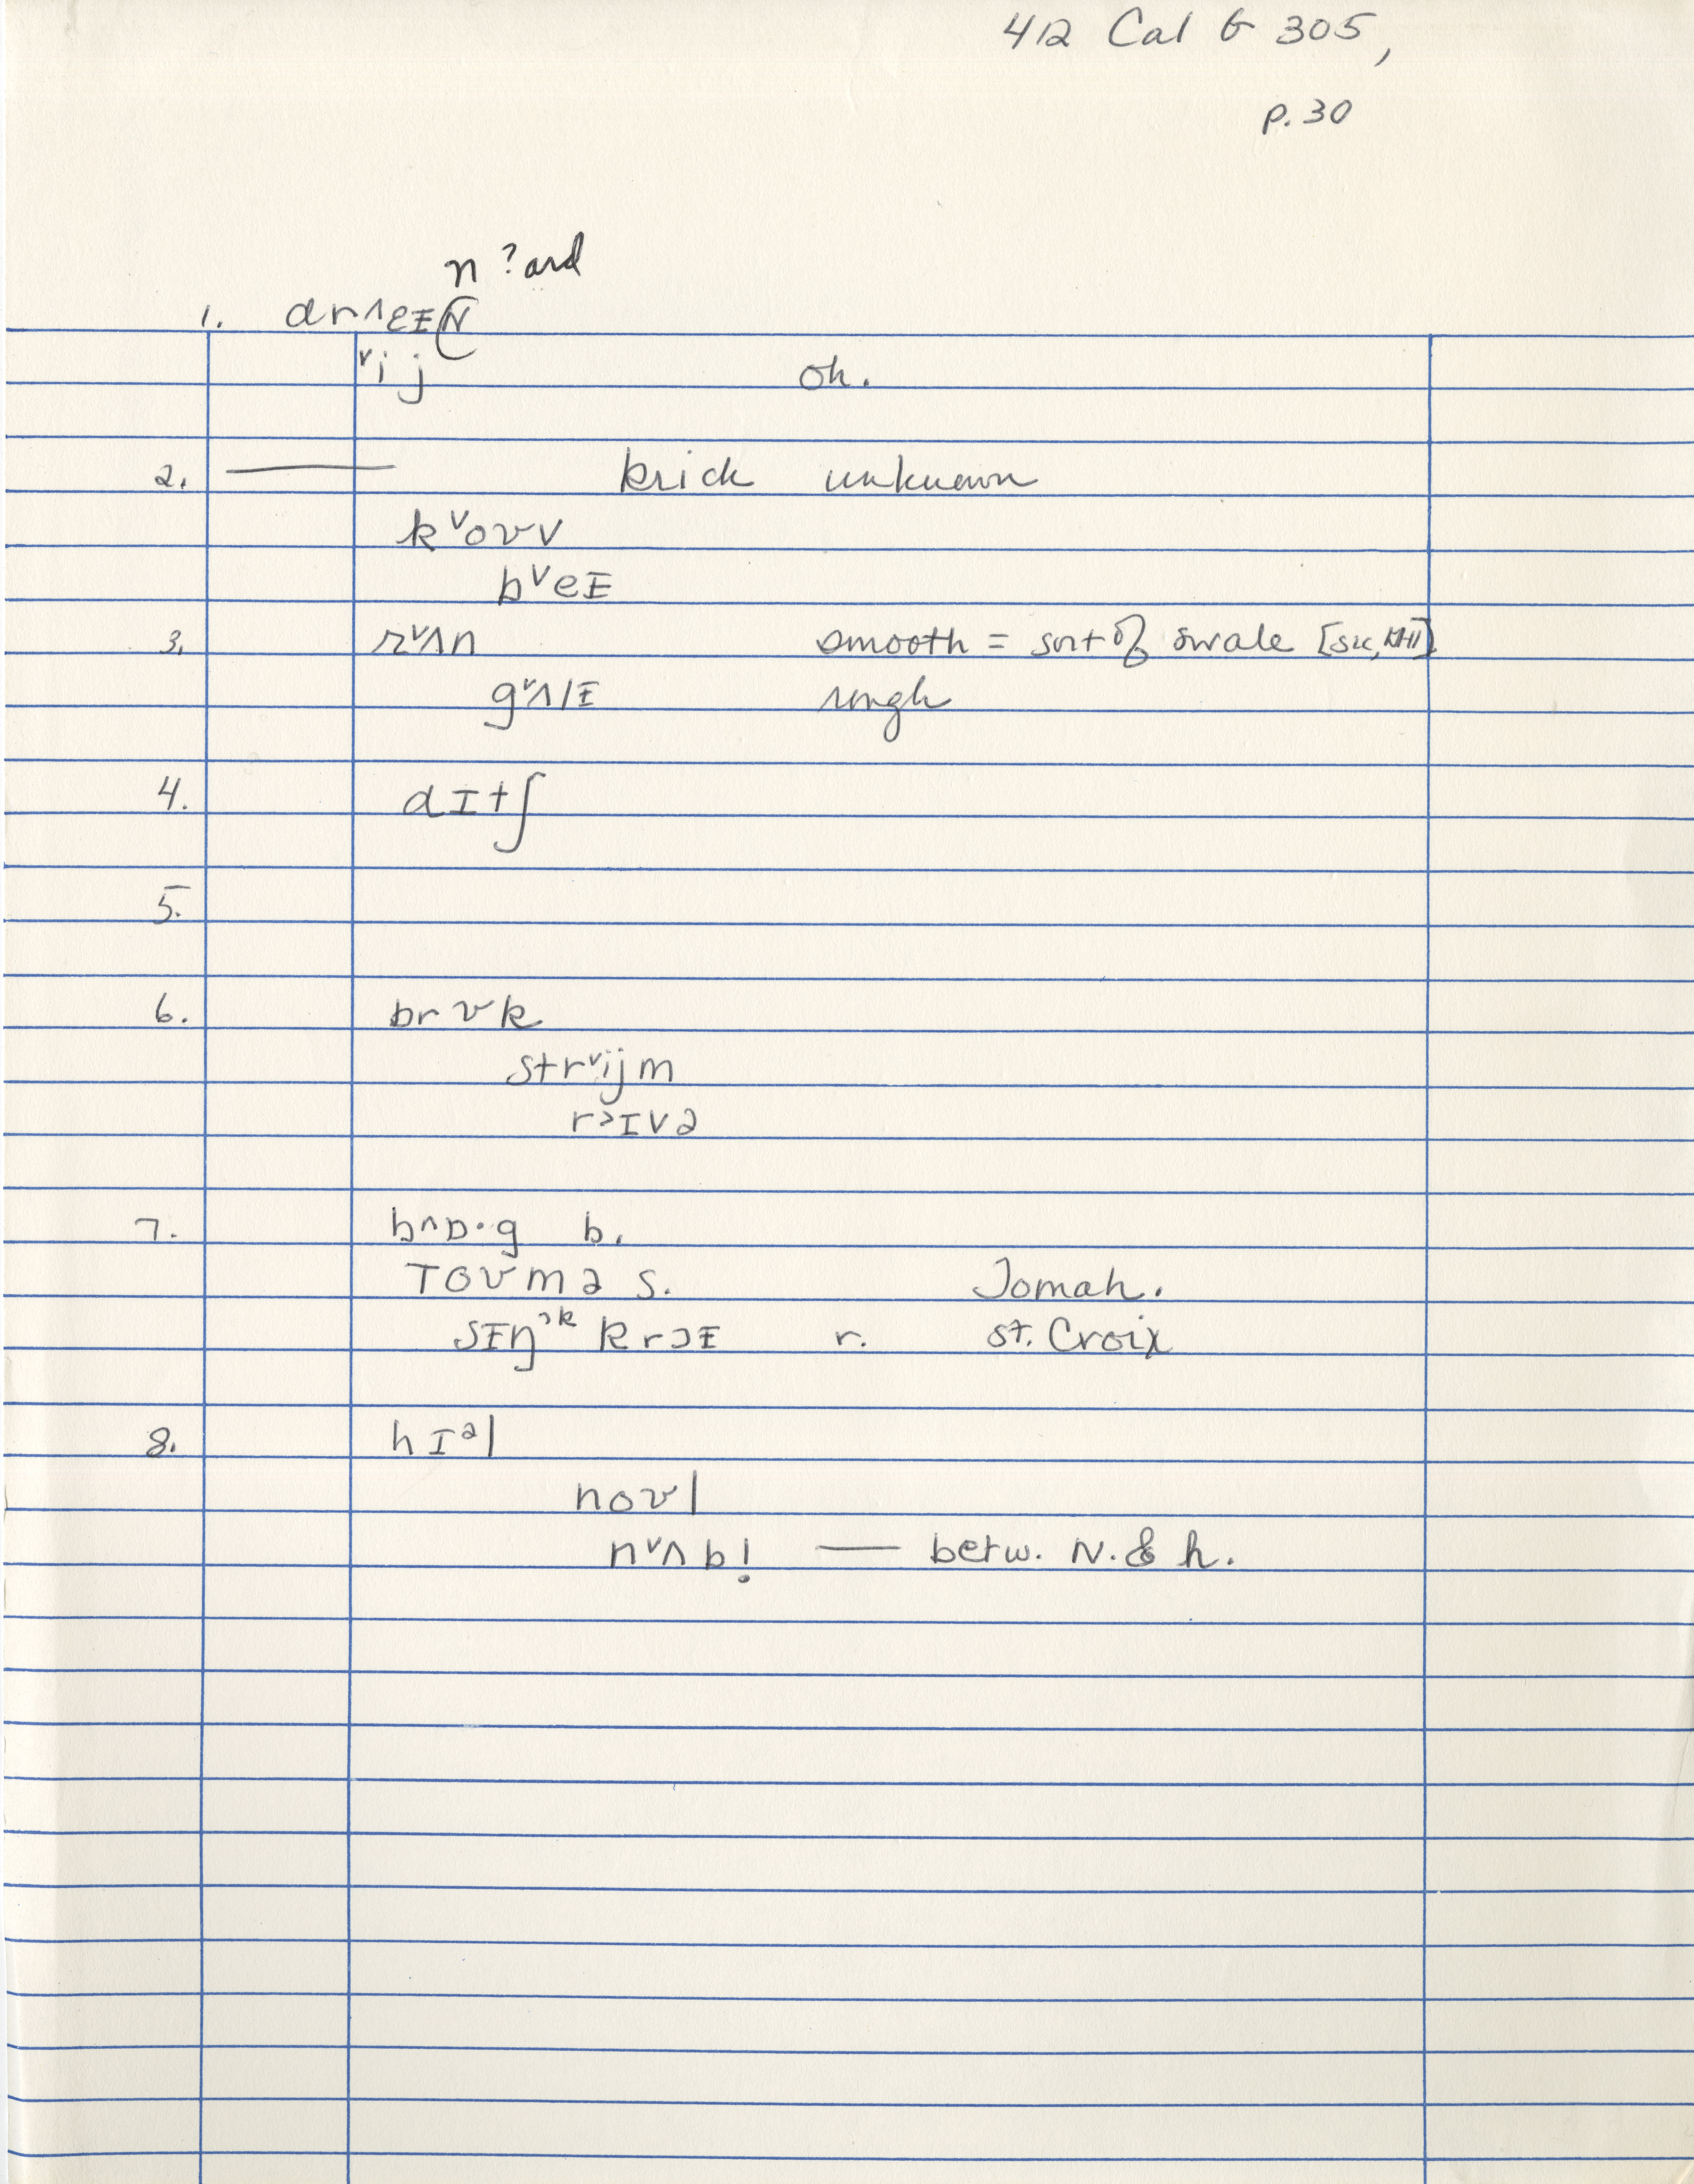 412 Cal G 305,
p. 30
n ?and
1. drʌɛɪN
ᵛij oh.
2. —— krick unknown
kᵛoʊv
bᵛeɪ
3. rᵛʌn smooth = sort of swale
gᵛʌlɪ rough
4. dɪtʃ
5.
6. brʊk
strᵛijm
r>ɪvə
7. b^ɒ·g b.
Toʊməs. Tomah.
sɪŋᵓᵏ krɔɪ r. St. Croix
8. hɪᵊl
noʊl
nᵛʌbl̩ —— betw. N. & h.